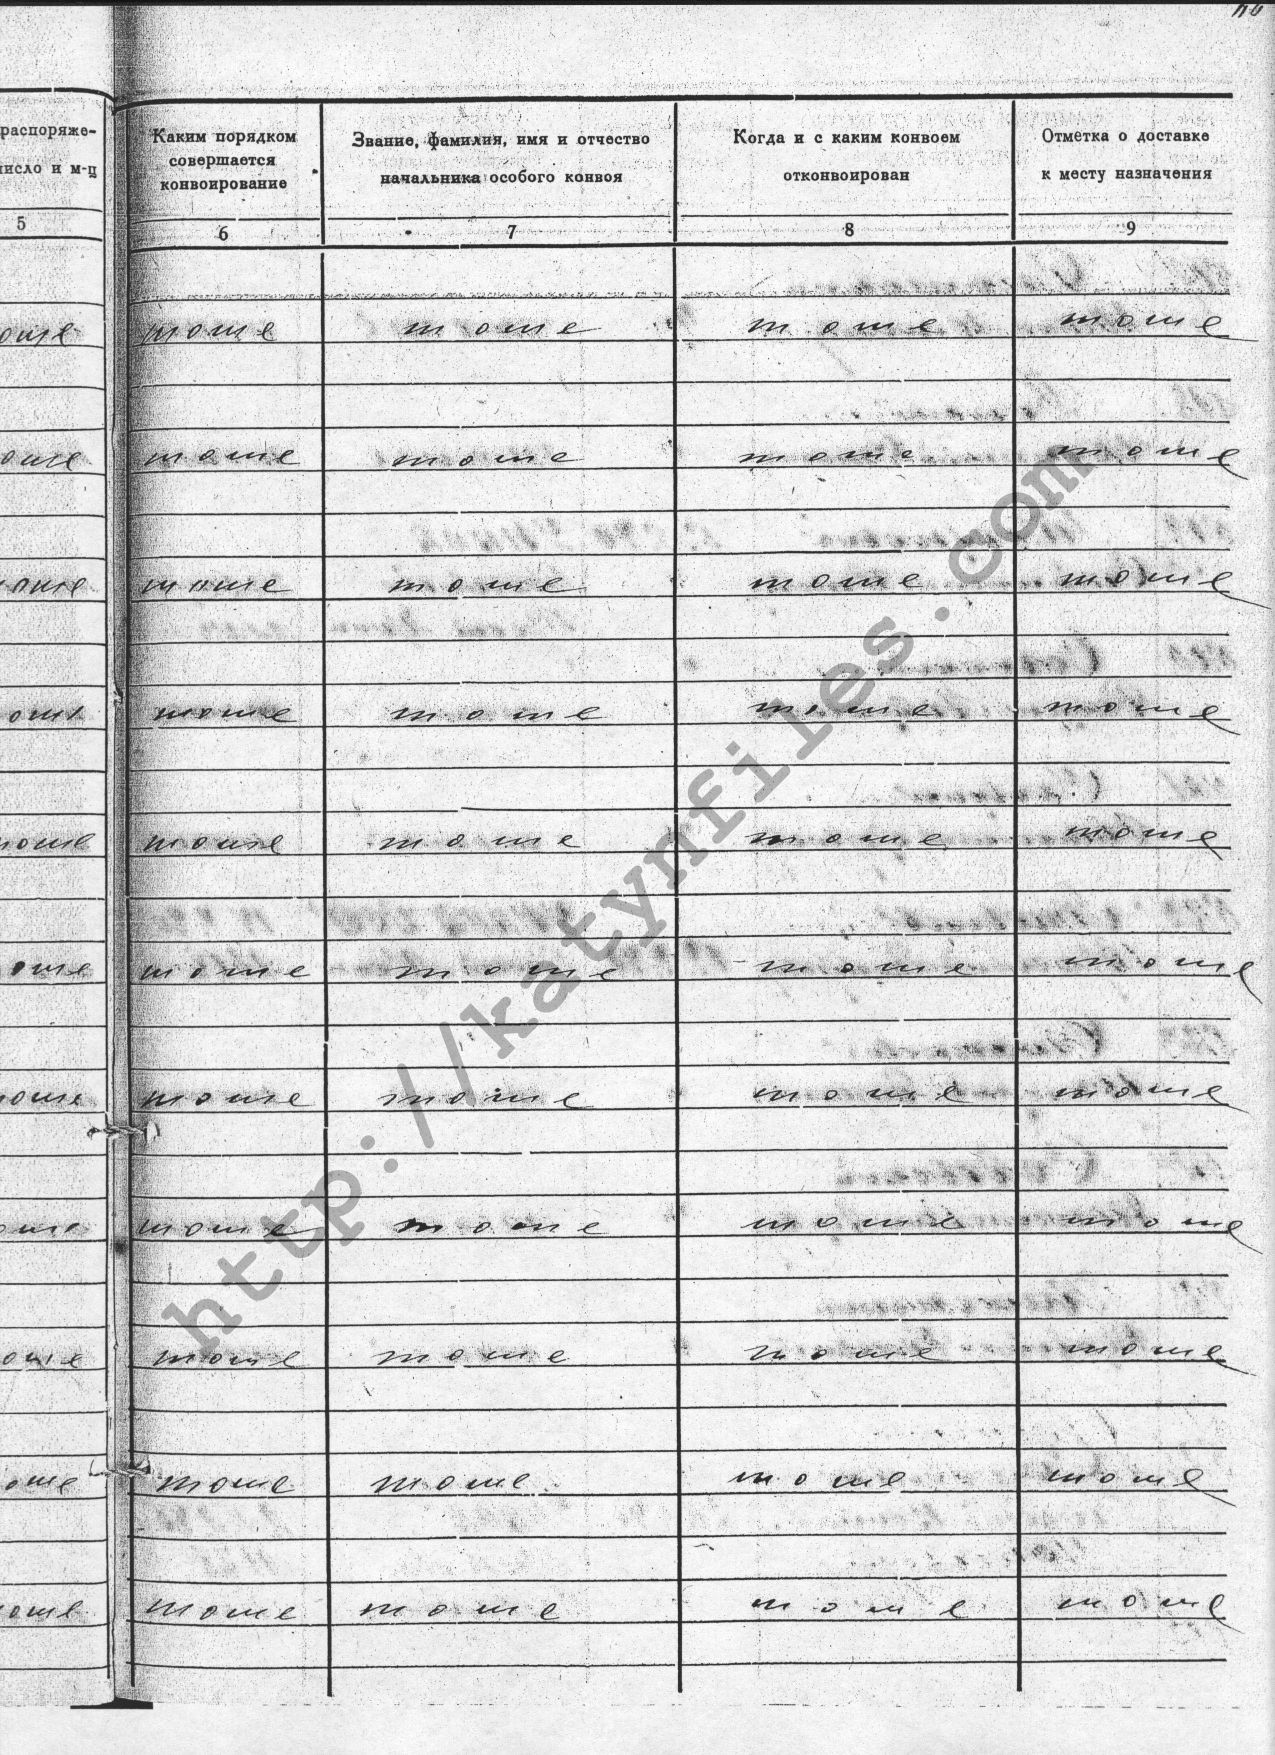 распоряже-
число и м-ц
5
Каким порядком
совершается
конвоирование
6
Звание, фамилия, имя и отчество
начальника особого конвоя
7
Когда и с каким конвоем
отконвоирован
8
Отметка о доставке
к месту назначения
9
тоже тоже тоже тоже тоже
тоже тоже тоже тоже тоже
тоже тоже тоже тоже тоже
тоже тоже тоже тоже тоже
тоже тоже тоже тоже тоже
тоже тоже тоже тоже тоже
тоже тоже тоже тоже тоже
тоже тоже тоже тоже тоже
тоже тоже тоже тоже тоже
тоже тоже тоже тоже тоже
тоже тоже тоже тоже тоже
http://katynfiles.com